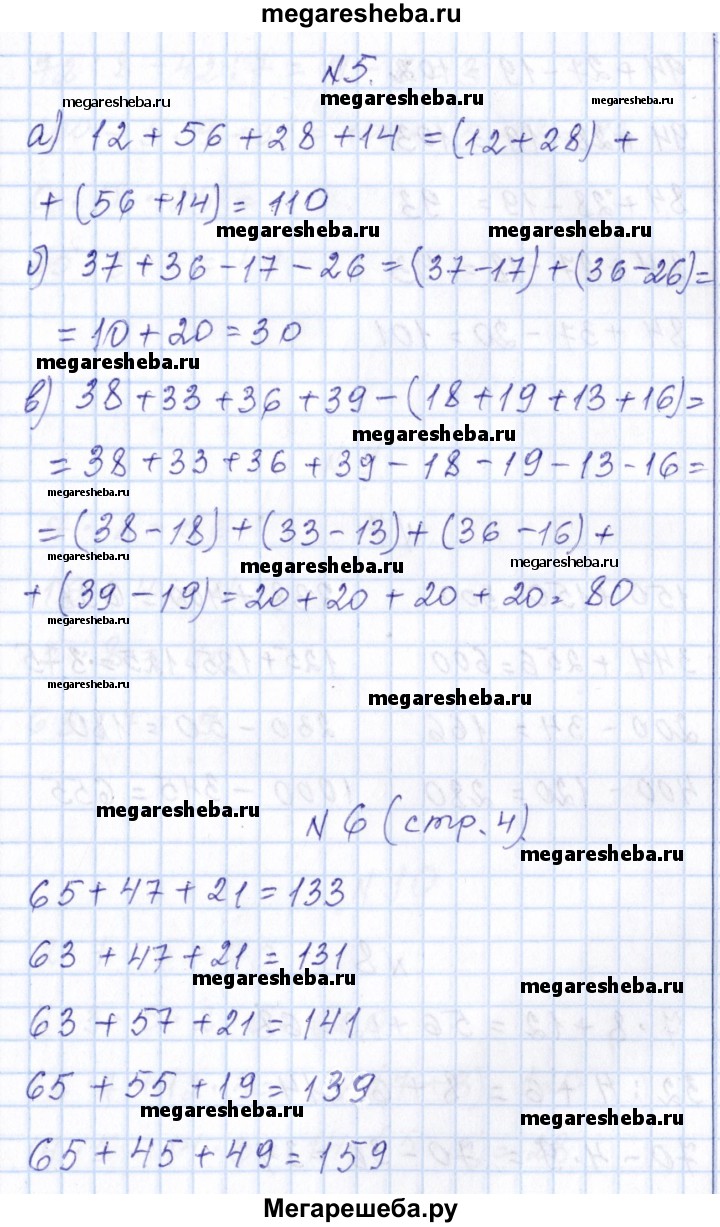 megaresheba.ru
№5.
megaresheba.ru megaresheba.ru megaresheba.ru
а) 12 + 56 + 28 + 14 = (12 + 28) +
+ (56 + 14) = 110
megaresheba.ru megaresheba.ru
б) 37 + 36 - 17 - 26 = (37 - 17) + (36 - 26) =
= 10 + 20 = 30
megaresheba.ru
в) 38 + 33 + 36 + 39 - (18 + 19 + 13 + 16) =
megaresheba.ru
= 38 + 33 + 36 + 39 - 18 - 19 - 13 - 16 =
megaresheba.ru
= (38 - 18) + (33 - 13) + (36 - 16) +
megaresheba.ru megaresheba.ru megaresheba.ru
+ (39 - 19) = 20 + 20 + 20 + 20 = 80
megaresheba.ru
megaresheba.ru megaresheba.ru
megaresheba.ru
№6 (стр. 4)
megaresheba.ru
65 + 47 + 21 = 133
63 + 47 + 21 = 131
megaresheba.ru megaresheba.ru
63 + 57 + 21 = 141
65 + 55 + 19 = 139
megaresheba.ru megaresheba.ru
65 + 45 + 49 = 159
Мегарешеба.ру